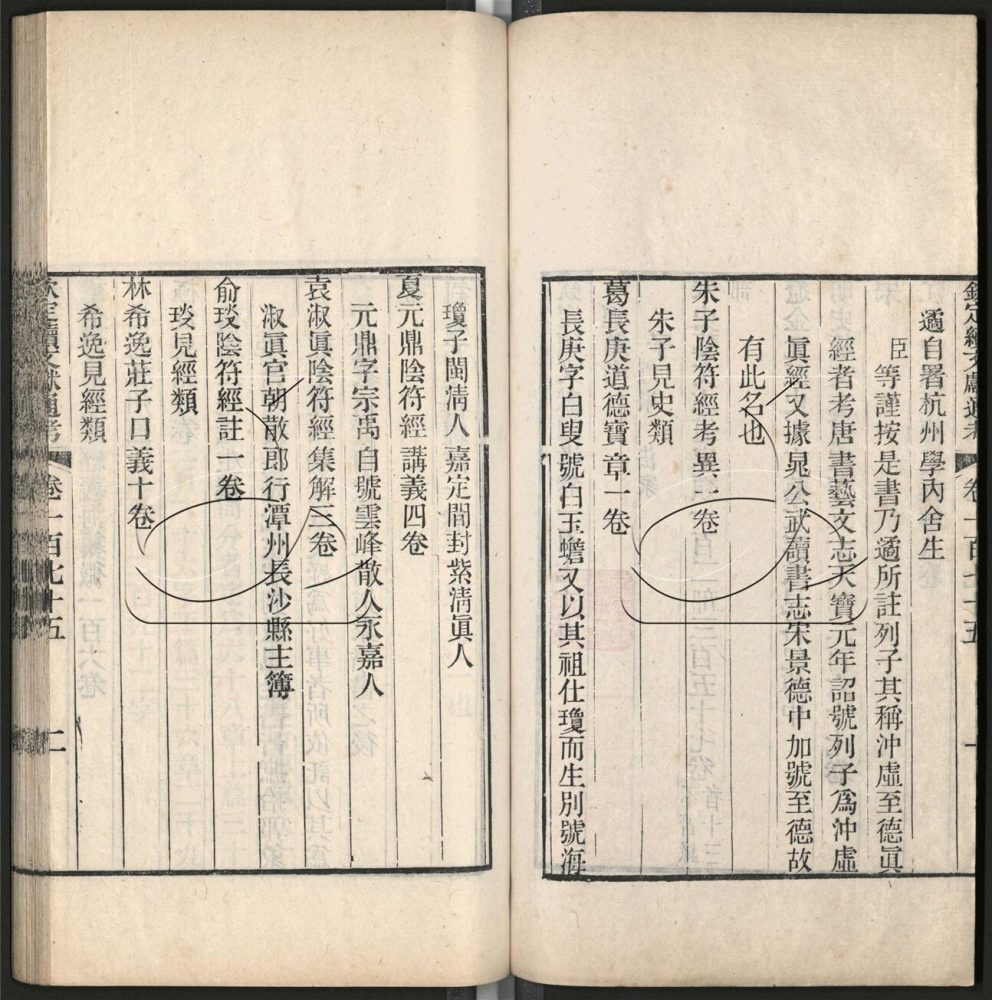 欽定續文獻通考 卷一百七十五 一
遹自署杭州學內舍生
臣等謹按是書乃遹所註列子其稱沖虛至德眞
經者考唐書藝文志天寶元年詔號列子爲沖虛
眞經又據晁公武讀書志宋景德中加號至德故
有此名也
朱子陰符經考異一卷
朱子見史類
葛長庚道德寶章一卷
長庚字白叟號白玉蟾又以其祖仕瓊而生別號海
瓊子閩淸人嘉定間封紫淸眞人
夏元鼎陰符經講義四卷
元鼎字宗禹自號雲峰散人永嘉人
袁淑眞陰符經集解三卷
淑眞官朝散郎行潭州長沙縣主簿
俞琰陰符經註一卷
琰見經類
林希逸莊子口義十卷
希逸見經類
欽定續文獻通考 卷一百七十五 二